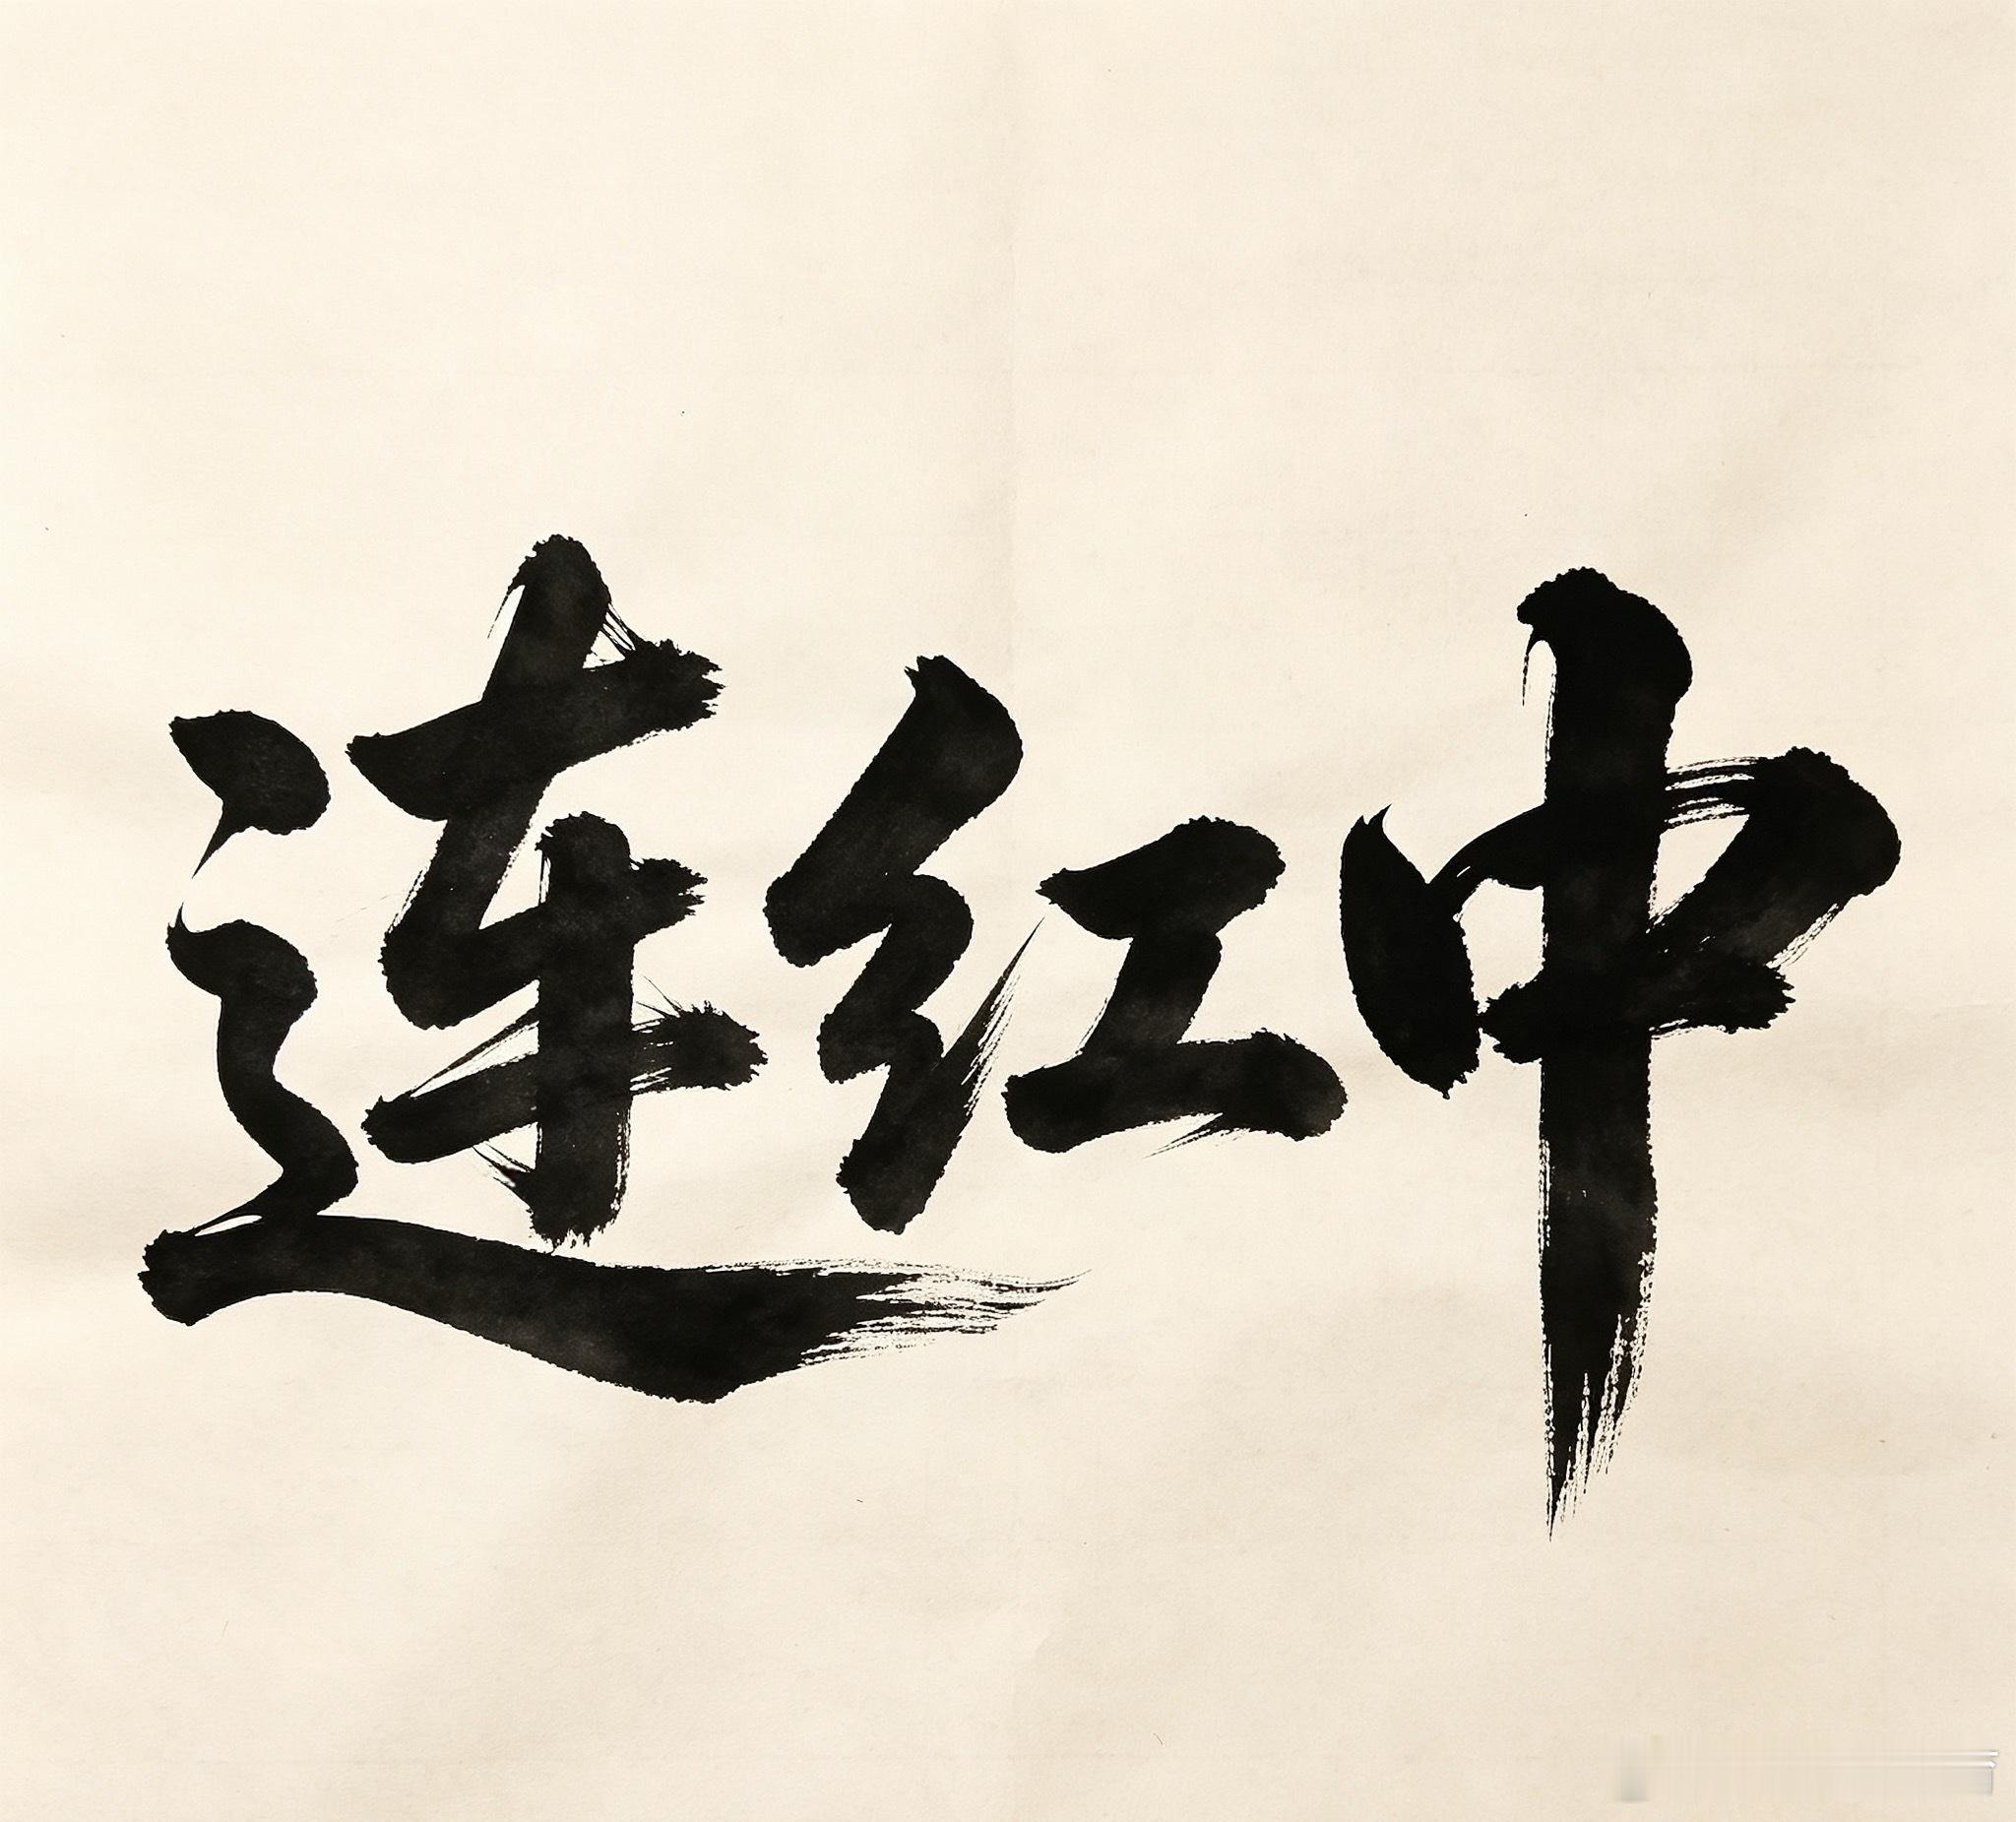 连红中